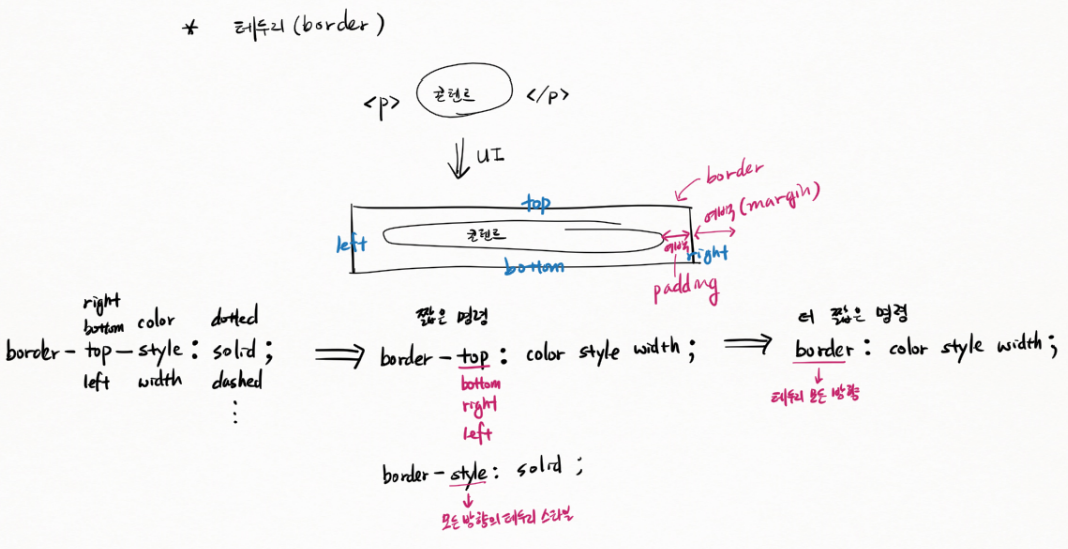 * 테두리 (border)
<p> 콘텐트 </p>
UI
border
top
여백 (margin)
left 콘텐트 여백 right
bottom
padding
right
bottom color dotted
border - top - style : solid ;
left width dashed
⋮
⇒
짧은 명령
border - top : color style width ;
bottom
right
left
⇒
더 짧은 명령
border : color style width ;
테두리 모든 방향
border - style : solid ;
모든 방향의 테두리 스타일